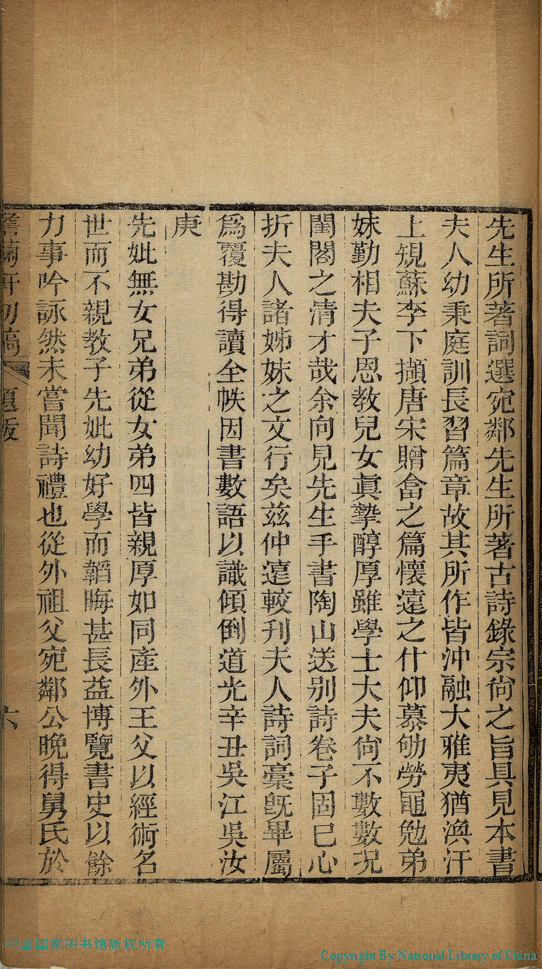 先生所著詞選宛鄰先生所著古詩錄宗尙之旨具見本書
夫人幼秉庭訓長習篇章故其所作皆沖融大雅夷猶渙汗
上規蘇李下擷唐宋贈畣之篇懷遠之什仰慕劬勞黽勉弟
妹勤相夫子恩教兒女眞摯醇厚雖學士大夫尙不數數況
閨閤之清才哉余向見先生手書陶山送别詩卷子固已心
折夫人諸姊妹之文行矣茲仲遠較刋夫人詩詞稾旣畢屬
爲覆勘得讀全帙因書數語以識傾倒道光辛丑吳江吳汝
庚
先妣無女兄弟從女弟四皆親厚如同產外王父以經術名
世而不親教子先妣幼好學而韜晦甚長益博覽書史以餘
力事吟詠然未嘗聞詩禮也從外祖父宛鄰公晚得舅氏於
軒初稿 題後 六
中国国家图书馆版权所有
Copyright By National Library of China